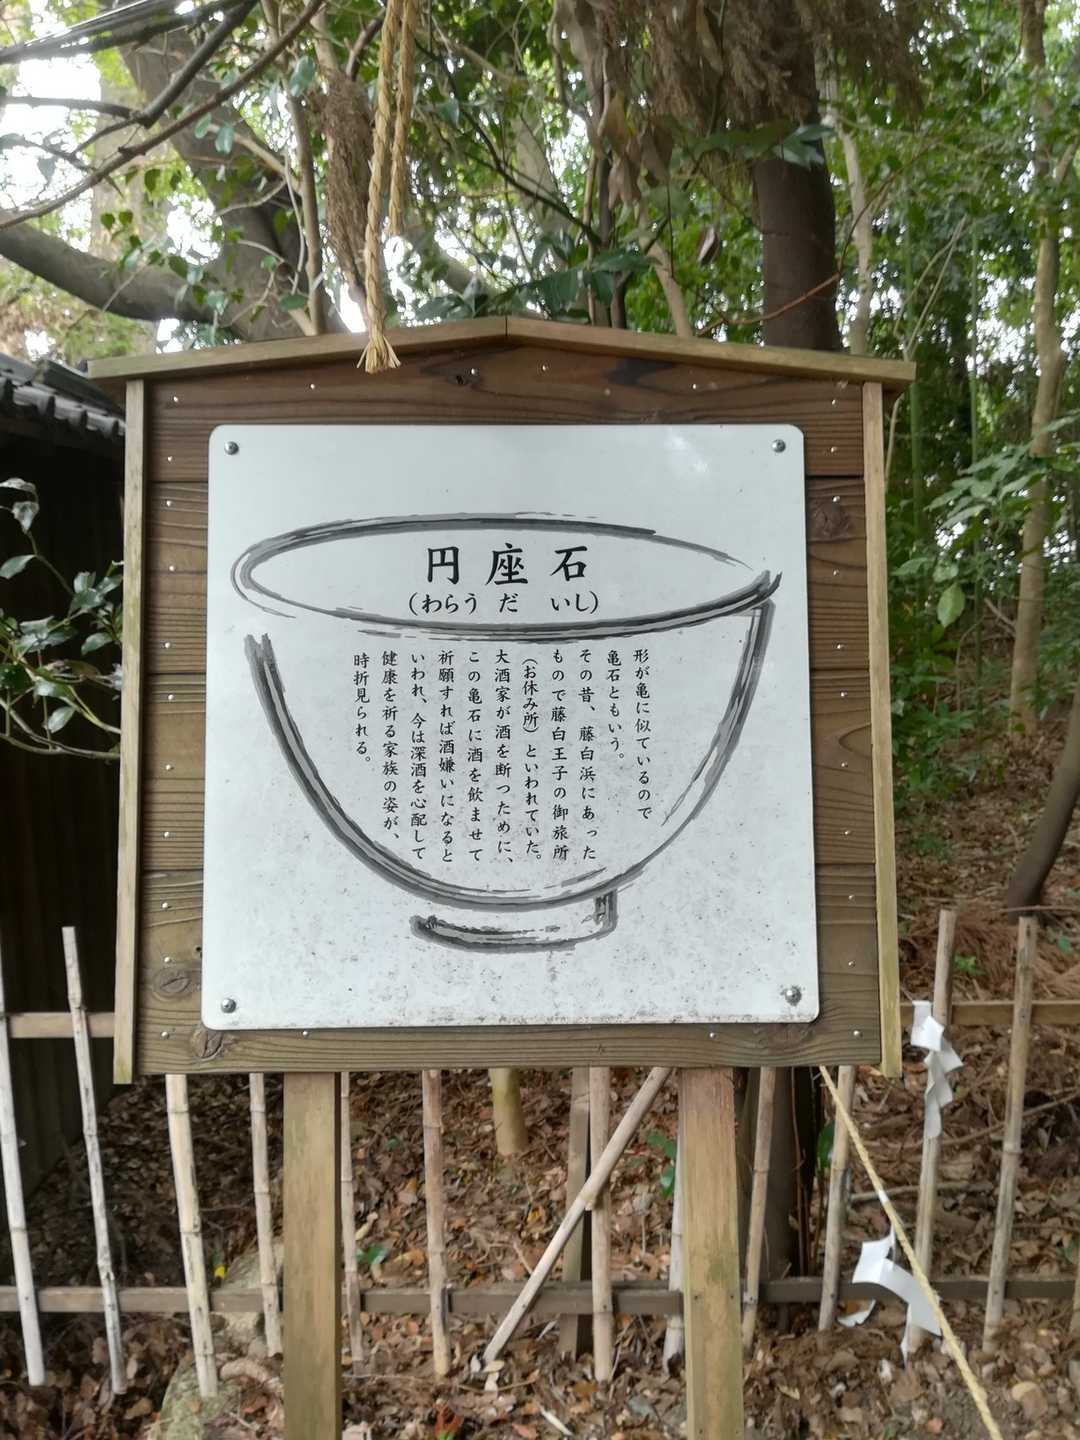 円座石
(わらうだ いし)
形が亀に似ているので
亀石ともいう。
その昔、藤白浜にあった
もので藤白王子の御旅所
(お休み所)といわれていた。
大酒家が酒を断つために、
この亀石に酒を飲ませて
祈願すれば酒嫌いになると
いわれ、今は深酒を心配して
健康を祈る家族の姿が、
時折見られる。